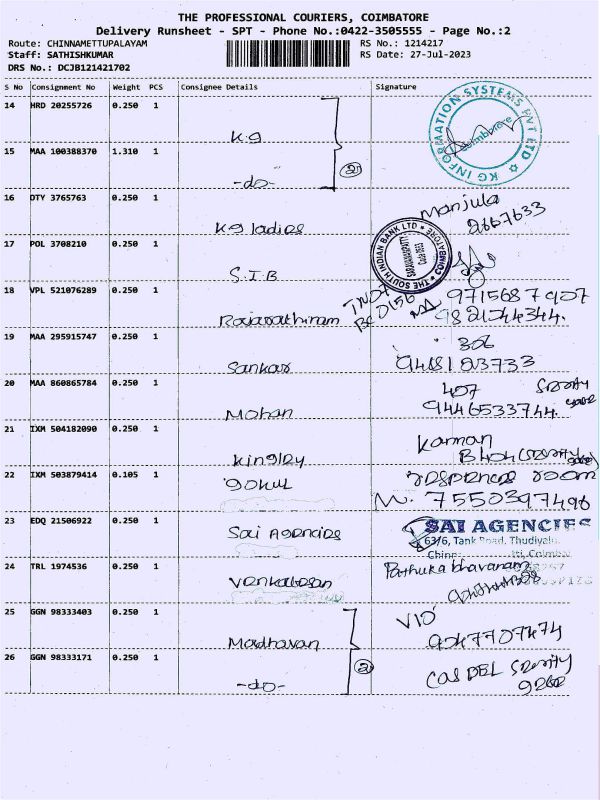 THE PROFESSIONAL COURIERS, COIMBATORE
Delivery Runsheet - SPT - Phone No.:0422-3505555 - Page No.:2
Route: CHINNAMETTUPALAYAM RS No.: 1214217
Staff: SATHISHKUMAR RS Date: 27-Jul-2023
DRS No.: DCJB121421702
S No Consignment No Weight PCS Consignee Details Signature
14 HRD 20255726 0.250 1 KG
KG INFORMATION SYSTEMS PVT LTD Coimbatore
15 MAA 100388370 1.310 1 -do- 2
16 DTY 3765763 0.250 1 KG ladies Manjula
2667633
17 POL 3708210 0.250 1 S.I.B
THE SOUTH INDIAN BANK LTD COIMBATORE
18 VPL 521076289 0.250 1 9715687907
9821044344.
19 MAA 295915747 0.250 1 Sankar 306
20 MAA 860865784 0.250 1 Mohan 407
9446533744.
21 IXM 504182090 0.250 1 Kingley Kannan
22 IXM 503879414 0.105 1 Gokul room
7550397496
23 EDQ 21506922 0.250 1 Sai Agencies SAI AGENCIES
63/6, Tank Road, Thudiyalu
24 TRL 1974536 0.250 1 Venkatesan
25 GGN 98333403 0.250 1 Madhavan
9047707474
26 GGN 98333171 0.250 1 -do- 2